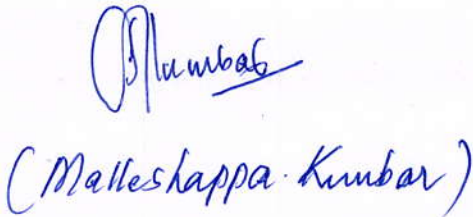 (Malleshappa. Kumbar)